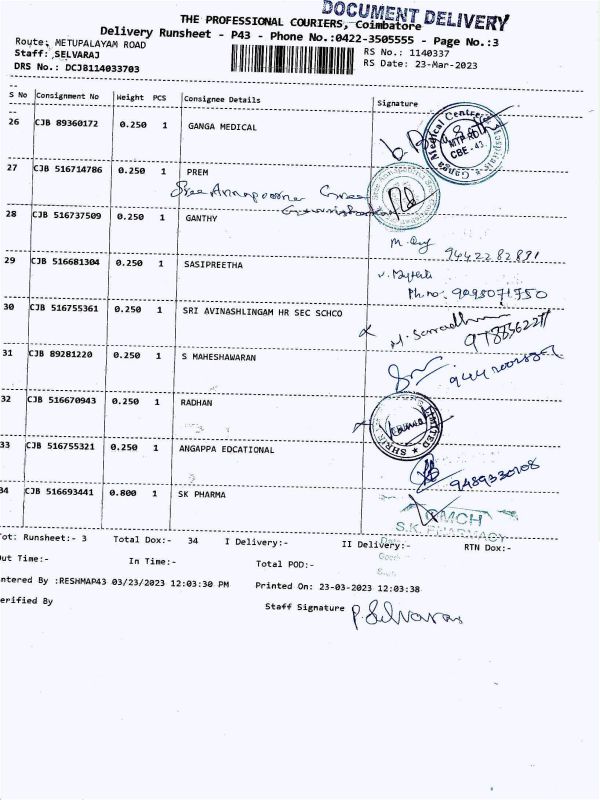 DOCUMENT DELIVERY
THE PROFESSIONAL COURIERS, Coimbatore
Delivery Runsheet - P43 - Phone No.:0422-3505555 - Page No.:3
Route: METUPALAYAM ROAD
RS No.: 1140337
Staff: SELVARAJ
RS Date: 23-Mar-2023
DRS No.: DCJ8114033703
S No Consignment No Weight PCS Consignee Details Signature
26 CJB 89360172 0.250 1 GANGA MEDICAL
Ganga Medical Centre Hospitals MTP RD. CBE - 43.
27 CJB 516714786 0.250 1 PREM
Sree Annapoorna Sree
28 CJB 516737509 0.250 1 GANTHY
9442282891
29 CJB 516681304 0.250 1 SASIPREETHA
Ph.no: 9095071750
30 CJB 516755361 0.250 1 SRI AVINASHLINGAM HR SEC SCHCO
31 CJB 89281220 0.250 1 S MAHESHAWARAN
32 CJB 516670943 0.250 1 RADHAN
LIMITED ★ SHRI
33 CJB 516755321 0.250 1 ANGAPPA EDCATIONAL
9489330108
34 CJB 516693441 0.800 1 SK PHARMA
GMCH
S.K PHARMACY
Tot: Runsheet:- 3 Total Dox:- 34 I Delivery:- II Delivery:- RTN Dox:-
Out Time:- In Time:- Total POD:-
ntered By :RESHMAP43 03/23/2023 12:03:30 PM Printed On: 23-03-2023 12:03:38
erified By Staff Signature P. Selvaraj